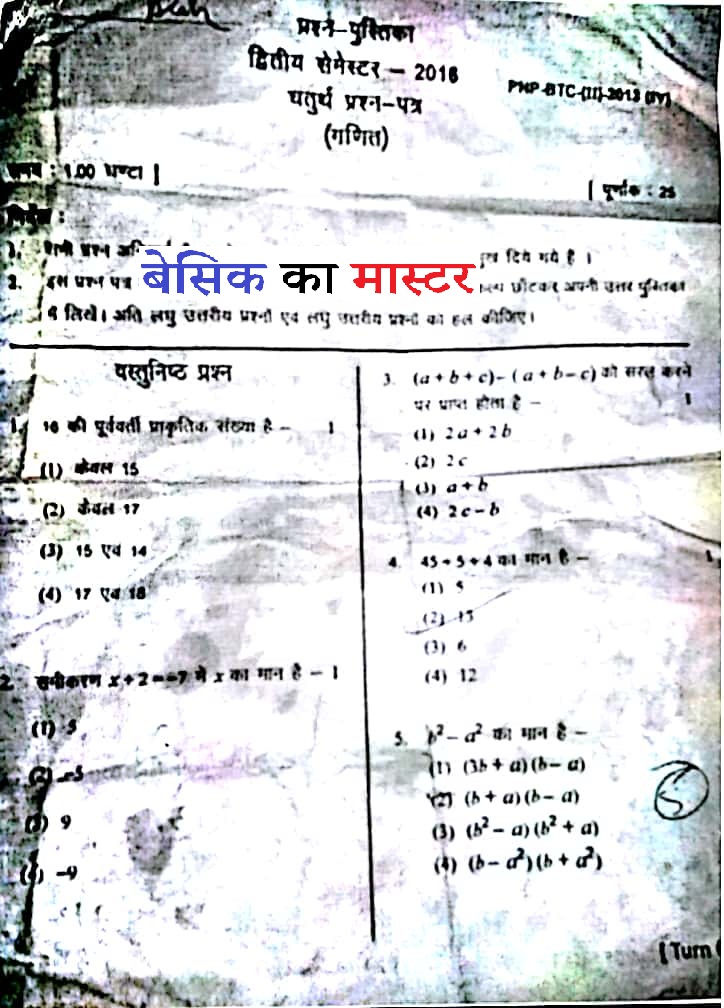 प्रश्न-पुस्तिका
द्वितीय सेमेस्टर – 2016
चतुर्थ प्रश्न-पत्र
(गणित)
PNP-BTC-(II)-2013 (IV)
समय : 1.00 घण्टा ]
[ पूर्णांक : 25
निर्देश :
1. सभी प्रश्न दिये गये है ।
2. इस प्रश्न पत्र छाँटकर अपनी उत्तर पुस्तिका
बेसिक का मास्टर
में लिखें। अति लघु उत्तरीय प्रश्नों एवं लघु उत्तरीय प्रश्नों को हल कीजिए।
वस्तुनिष्ठ प्रश्न
1. 16 की पूर्ववर्ती प्राकृतिक संख्या है – 1
(1) केवल 15
(2) केवल 17
(3) 15 एवं 14
(4) 17 एवं 18
2. समीकरण x + 2 = -7 में x का मान है – 1
(1) 5
(2) -5
(3) 9
(4) -9
3. (a + b + c) - ( a + b - c) को सरल करने
पर प्राप्त होता है – 1
(1) 2a + 2b
(2) 2c
(3) a + b
(4) 2c - b
4. 45 ÷ 5 + 4 का मान है – 1
(1) 5
(2) 15
(3) 6
(4) 12
5. b² - a² का मान है –
(1) (3b + a) (b - a)
(2) (b + a) (b - a)
(3) (b² - a) (b² + a)
(4) (b - a²) (b + a²)
5
[ Turn